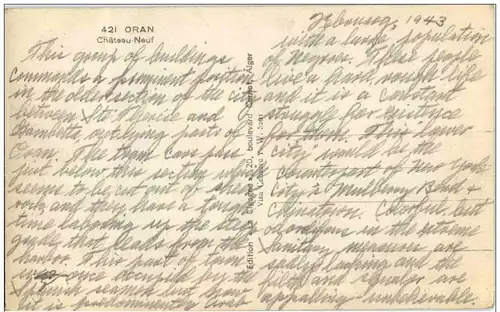 421 ORAN
Château-Neuf
This group of buildings
commands a prominent position
in the older section of the city
between St Thérèse and
Gambetta, outlying parts of
Oran. The tram cars pass
just below, this section which
seems to be cut out of sheer
rock and they have a tough
time laboring up the steep
grade that leads from the
harbor. This part of town
was once occupied by the
Spanish seamen but now
it is predominantly Arab
Edition "La Pigeonne", 20, boulevard Carnot, Alger
Visa
February, 1943
with a large population
of Negroes. These people
live a hard, rough life
and it is a constant
struggle for existence
for them. This "lower
city" would be the
counterpart of New York
City's Mulberry Bend &
Chinatown. Colorful, but
odoriferous in the extreme
sanitary measures are
sadly lacking and the
filth and squalor are
appalling - unbelievable.